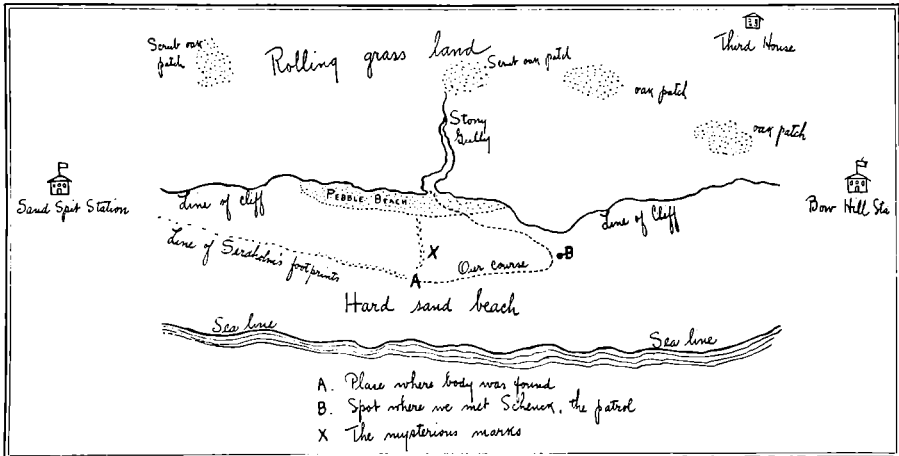 Third House
Scrub oak
patch
Rolling grass land
Scrub oak patch
oak patch
oak patch
Stony
Gully
Sand Spit Station
Line of cliff
PEBBLE BEACH
Line of Cliff
Bow Hill Sta
Line of Serahelm's footprints
X
B
Our course
A
Hard sand beach
Sea line
Sea line
A. Place where body was found
B. Spot where we met Schenck, the patrol
X The mysterious marks